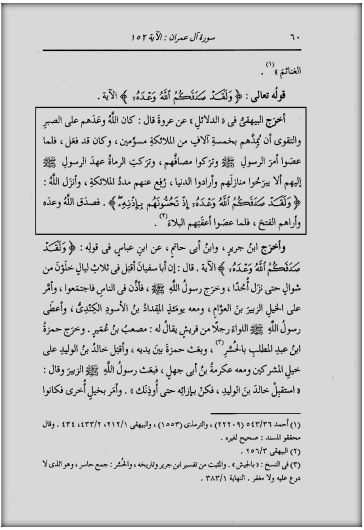 ٦٠ سورة آل عمران : الآية ١٥٢
الغنائم »(١) .
قولُه تعالى : ﴿ وَلَقَدْ صَدَقَكُمُ ٱللَّهُ وَعْدَهُۥٓ ﴾ الآية .
أخرَج البيهقىُّ فى « الدلائلِ » عن عروةَ قال : كان اللَّهُ وعَدهم على الصبرِ
والتقوى أن يُمِدَّهم بخمسةِ آلافٍ من الملائكةِ مسوِّمين، وكان قد فعَل، فلما
عصَوا أمرَ الرسولِ ﷺ وتركوا مصافَّهم، وتركتِ الرماةُ عهدَ الرسولِ ﷺ
إليهم ألا يبرَحوا منازلَهم وأرادوا الدنيا، رُفِع عنهم مددُ الملائكةِ، وأنزَل اللَّهُ :
﴿ وَلَقَدْ صَدَقَكُمُ ٱللَّهُ وَعْدَهُۥٓ إِذْ تَحُسُّونَهُم بِإِذْنِهِۦ ﴾ . فصدَق اللَّهُ وعدَه
وأراهم الفتحَ، فلما عصَوا أعقَبهم البلاءَ(٢) .
وأخرَج ابنُ جريرٍ، وابنُ أبى حاتمٍ، عن ابنِ عباسٍ فى قولِه : ﴿ وَلَقَدْ
صَدَقَكُمُ ٱللَّهُ وَعْدَهُۥٓ ﴾ الآية . قال : إن أبا سفيانَ أقبَل فى ثلاثِ ليالٍ خلَوْن من
شوالٍ حتى نزَل أُحُدًا، وخرَج رسولُ اللَّهِ ﷺ، فأذَّن فى الناسِ فاجتمَعوا، وأمَّر
على الخيلِ الزبيرَ بنَ العوَّامِ، ومعه يومَئذٍ المقدادُ بنُ الأسودِ الكِنْدِىُّ، وأعطَى
رسولُ اللَّهِ ﷺ اللواءَ رجلًا من قريشٍ يقالُ له : مصعبُ بنُ عُميرٍ . وخرَج حمزةُ
ابنُ عبدِ المطلبِ بالحُسَّرِ(٣)، وبعَث حمزةَ بينَ يديه، وأقبَل خالدُ بنُ الوليدِ على
خيلِ المشركين ومعه عكرمةُ بنُ أبى جهلٍ، فبعَث رسولُ اللَّهِ ﷺ الزبيرَ وقال :
« استقبِلْ خالدَ بنَ الوليدِ، فكنْ بإزائِه حتى أُوذِنَك » . وأمَر بخيلٍ أُخرى فكانوا
(١) أحمد ٥٤٣/٣٦ (٢٢٢٠٩)، والترمذى (١٥٥٣)، والبيهقى ٢١٢/١، ٤٣٣/٢، ٤٣٤. وقال
محققو المسند : صحيح لغيره .
(٢) البيهقى ٢٥٦/٣ .
(٣) فى النسخ : « بالجيش » . والمثبت من تفسير ابن جرير وتاريخه، والحُسَّر : جمع حاسر، وهو الذى لا
درع عليه ولا مغفر . النهاية ٣٨٣/١ .